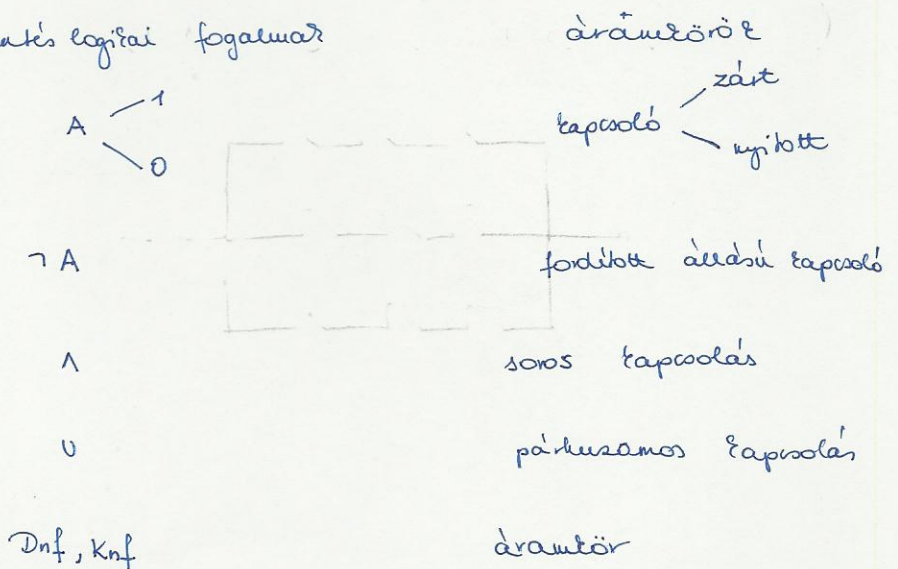 logikai fogalmak áramkörök
A 1 0 kapcsoló zárt nyitott
¬A fordított állású kapcsoló
∧ soros kapcsolás
∪ párhuzamos kapcsolás
Dnf, Knf áramkör